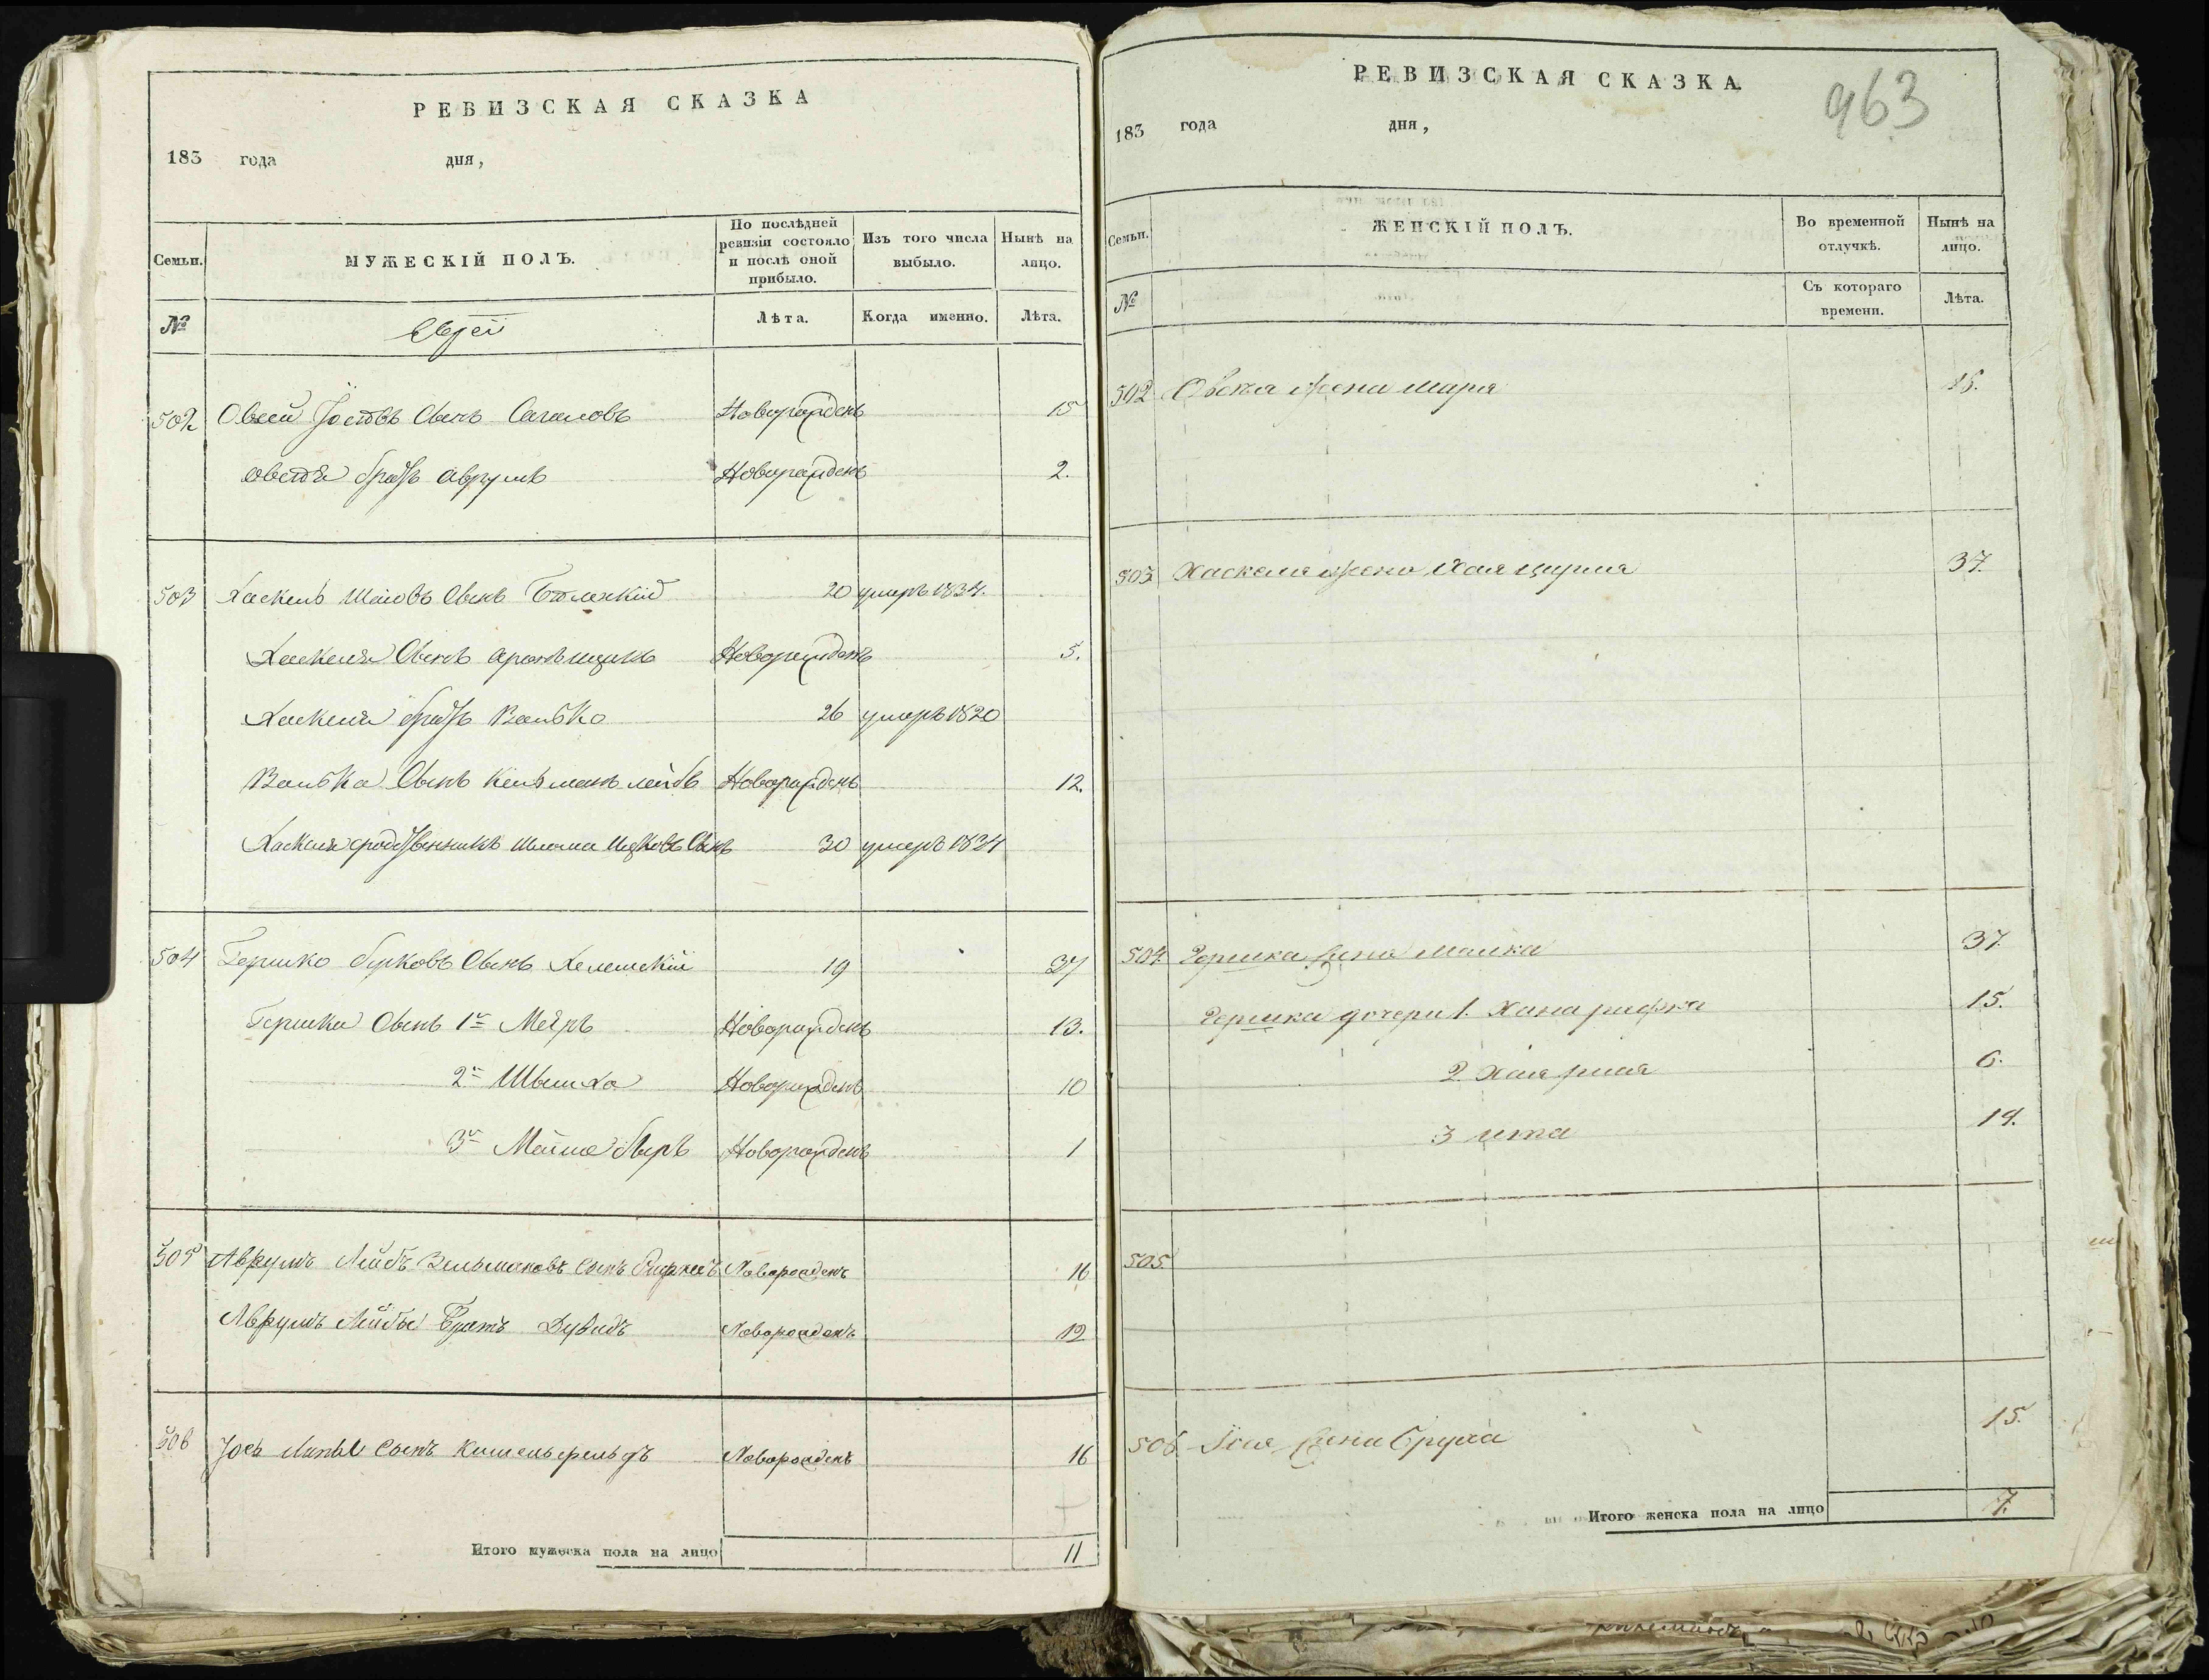 РЕВИЗСКАЯ СКАЗКА
183 года дня,
Семьи.
МУЖЕСКІЙ ПОЛЪ.
По послѣдней ревизіи состояло и послѣ оной прибыло.
Изъ того числа выбыло.
Нынѣ на лицо.
№
Евреи
Лѣта.
Когда именно.
Лѣта.
502 Овсей Іосіовъ Сынъ Новорожденъ 15
Овсія братъ Аврумъ Новорожденъ 2.
503 Хаскель Шаіовъ Сынъ 20 умеръ 1834.
Хаскеля Сынъ Аронъ Ицикъ Новорожденъ 5.
Хаскеля братъ Волько 26 умеръ 1820
Волька Сынъ Кельманъ Лейбъ Новорожденъ 12.
Хаскеля родственникъ Шлома Ицковъ Сынъ 30 умеръ 1834
504 Гершко Берковъ Сынъ Хелемскій 19 37
Гершки Сынъ 1й Меіръ Новорожденъ 13.
2й Шымха Новорожденъ 10
3й Беръ Новорожденъ 1
505 Аврумъ Лейбъ Зельмановъ Сынъ Новорожденъ 16
Аврумъ Лейбы Братъ Дувидъ Новорожденъ 12
506 Іось Липы Сынъ Кишельфельдъ Новорожденъ 16
Итого мужеска пола на лицо 11
РЕВИЗСКАЯ СКАЗКА
963
183 года дня,
Семьи.
ЖЕНСКІЙ ПОЛЪ.
Во временной отлучкѣ.
Нынѣ на лицо.
№
Съ котораго времени.
Лѣта.
502 Овсія жена Маря 15.
503 Хаскеля жена Хая Цирля 37.
504. Гершка жена Малка 37.
Гершка дочери 1. Хана Рифка 15.
2. Хая 6.
3 Ита 14.
505.
506. Іося жена Бруха 15.
Итого женска пола на лицо 7.